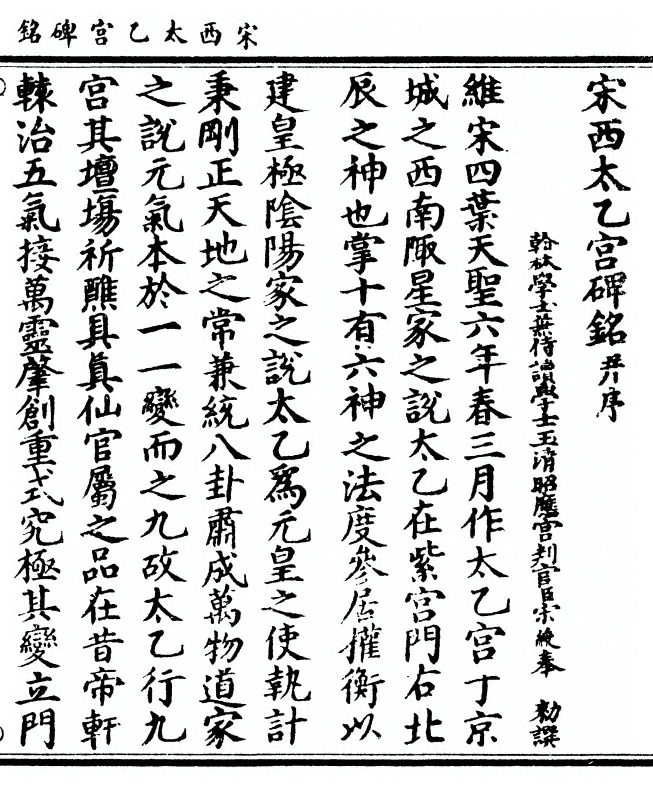 宋西太乙宮碑銘
宋西太乙宮碑銘并序
翰林學士兼侍讀學士玉清昭應宮判官臣宋綬奉 勅譔
維宋四葉天聖六年春三月作太乙宮于京
城之西南陬星家之說太乙在紫宮門右北
辰之神也掌十有六神之法度參居權衡以
建皇極陰陽家之說太乙爲元皇之使執計
秉剛正天地之常兼統八卦肅成萬物道家
之說元氣本於一一變而之九故太乙行九
宮其壇場祈醮具眞仙官屬之品在昔帝軒
轅治五氣接萬靈肇創重式究極其變立門